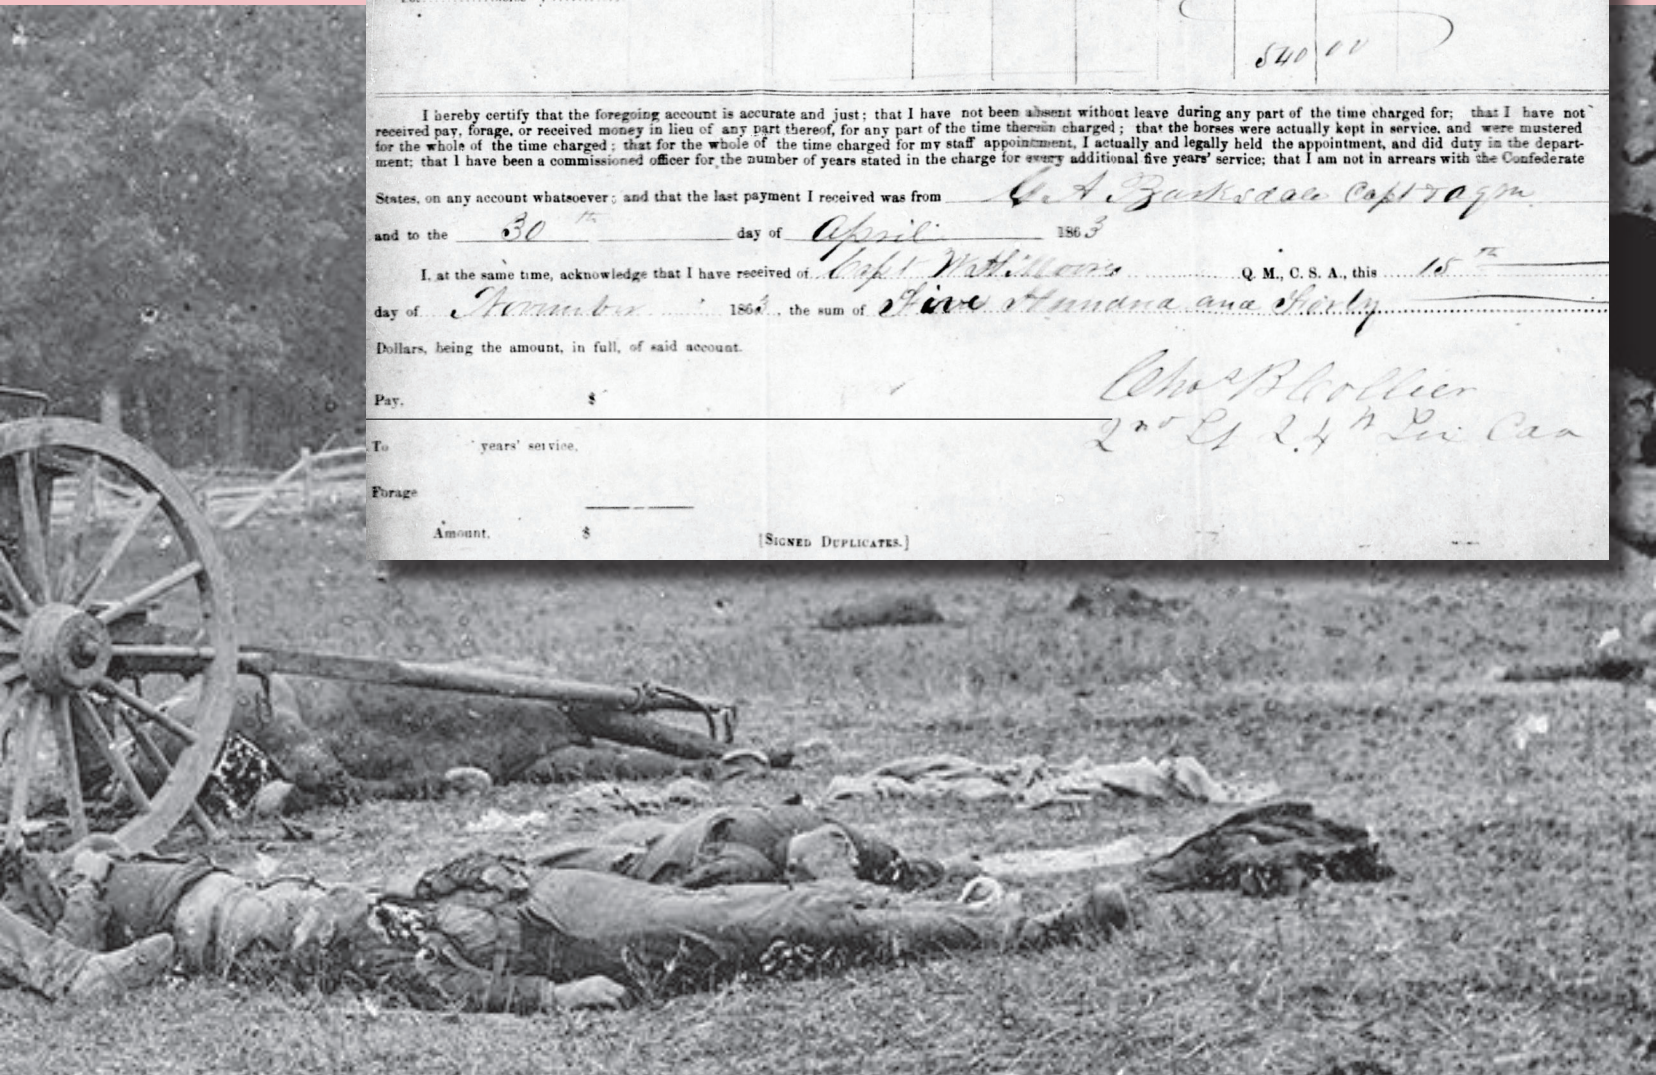 540 00
I hereby certify that the foregoing account is accurate and just; that I have not been absent without leave during any part of the time charged for; that I have not
received pay, forage, or received money in lieu of any part thereof, for any part of the time therein charged; that the horses were actually kept in service, and were mustered
for the whole of the time charged; that for the whole of the time charged for my staff appointment, I actually and legally held the appointment, and did duty in the depart-
ment; that I have been a commissioned officer for the number of years stated in the charge for every additional five years' service; that I am not in arrears with the Confederate
States, on any account whatsoever; and that the last payment I received was from G A Barksdale Capt & aqm
and to the 30th day of April 1863
I, at the same time, acknowledge that I have received of Capt Q. M., C. S. A., this 15th
day of November 1863, the sum of Five Hundred and Forty
Dollars, being the amount, in full, of said account.
Chas B Collier
Pay, $
2nd Lt Cav
To years' service,
Forage
Amount, $ [SIGNED DUPLICATES.]